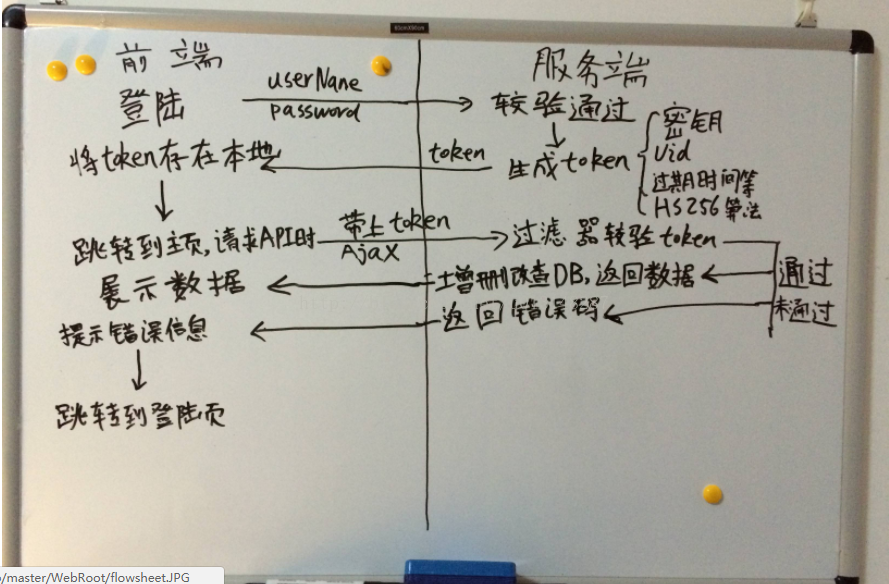 前端
服务端
登陆
userName
password
较验通过
密钥
Uid
过期时间等
HS256算法
将token存在本地
token
生成token
跳转到主页,请求API时
带上token
Ajax
过滤器较验token
展示数据
增删改查DB,返回数据
通过
提示错误信息
返回错误码
未通过
跳转到登陆页
/master/WebRoot/flowsheet.JPG